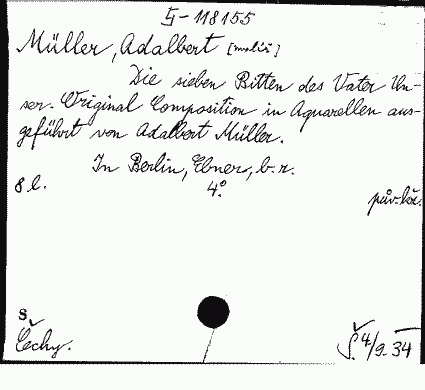 G-118155
Müller, Adalbert [malíř]
Die sieben Bitten des Vater Un-
ser. Original Composition in Aquarellen aus-
geführt von Adalbert Müller.
In Berlin, Ebner, b. r.
8 l. 4°
pův. kož.
s
Čechy.
Š. 4/9. 34